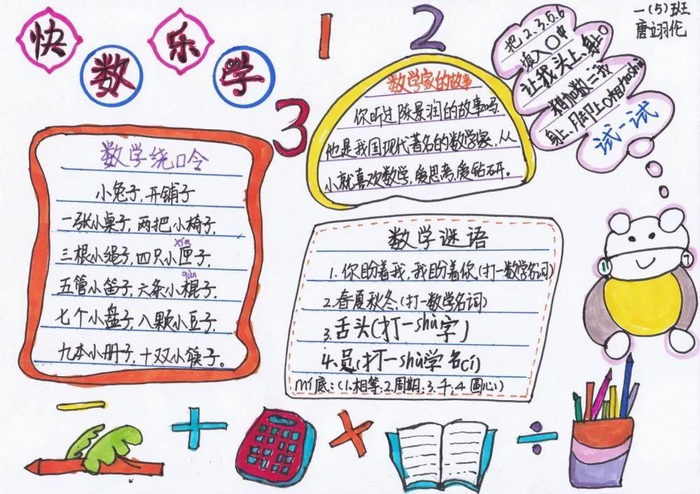 快数乐学
1
2
3
一(5)班
唐诩伦
把2.3.5.6
填入○中
让我头上、身上
身上、
试一试
数学家的故事
你听过陈景润的故事吗
他是我国现代著名的数学家，从
小就喜欢数学，爱思考，爱钻研。
数学绕口令
小兔子，开铺子
一张小桌子，两把小椅子，
三根小绳子，四只小匣子，
xiá
五管小笛子，六条小棍子，
gùn
七个小盘子，八颗小豆子，
九本小册子，十双小筷子。
数学谜语
1.你盼着我，我盼着你(打一数学名词)
2.春夏秋冬(打一数学名词)
3.舌头(打一shù字)
4.员(打一shù学名cí)
mí底:(1.相等;2.周期;3.千;4.圆心)
− + × ÷